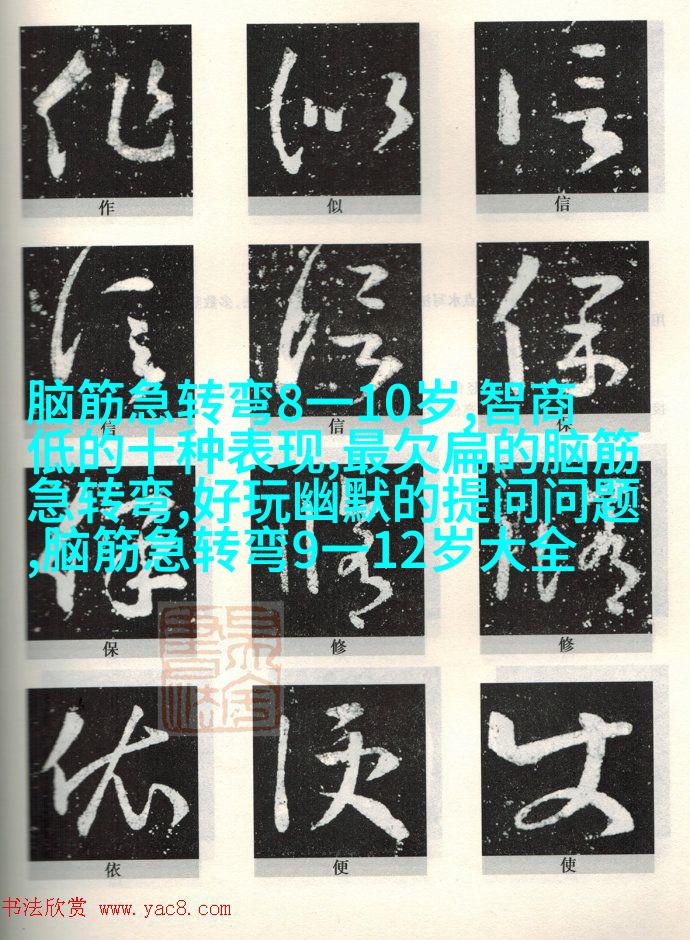 作 似 信
作 似 信
信 信 保
脑筋急转弯8一10岁,智商
信 信 保
低的十种表现,最欠扁的脑筋
急转弯,好玩幽默的提问问题
,脑筋急转弯9一12岁大全
保 修 修
保 修 修
依 便 使
依 便 使
书法欣赏 www.yac8.com